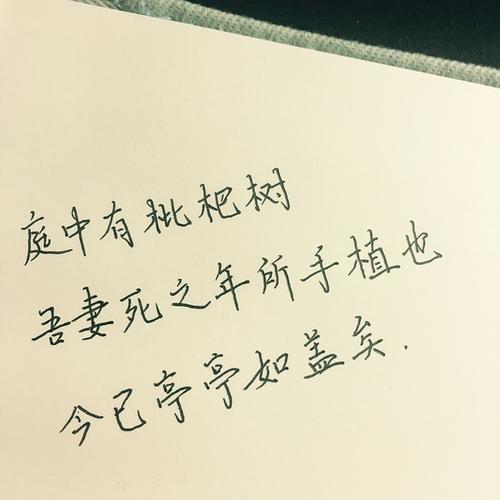 庭中有枇杷树
吾妻死之年所手植也
今已亭亭如盖矣.